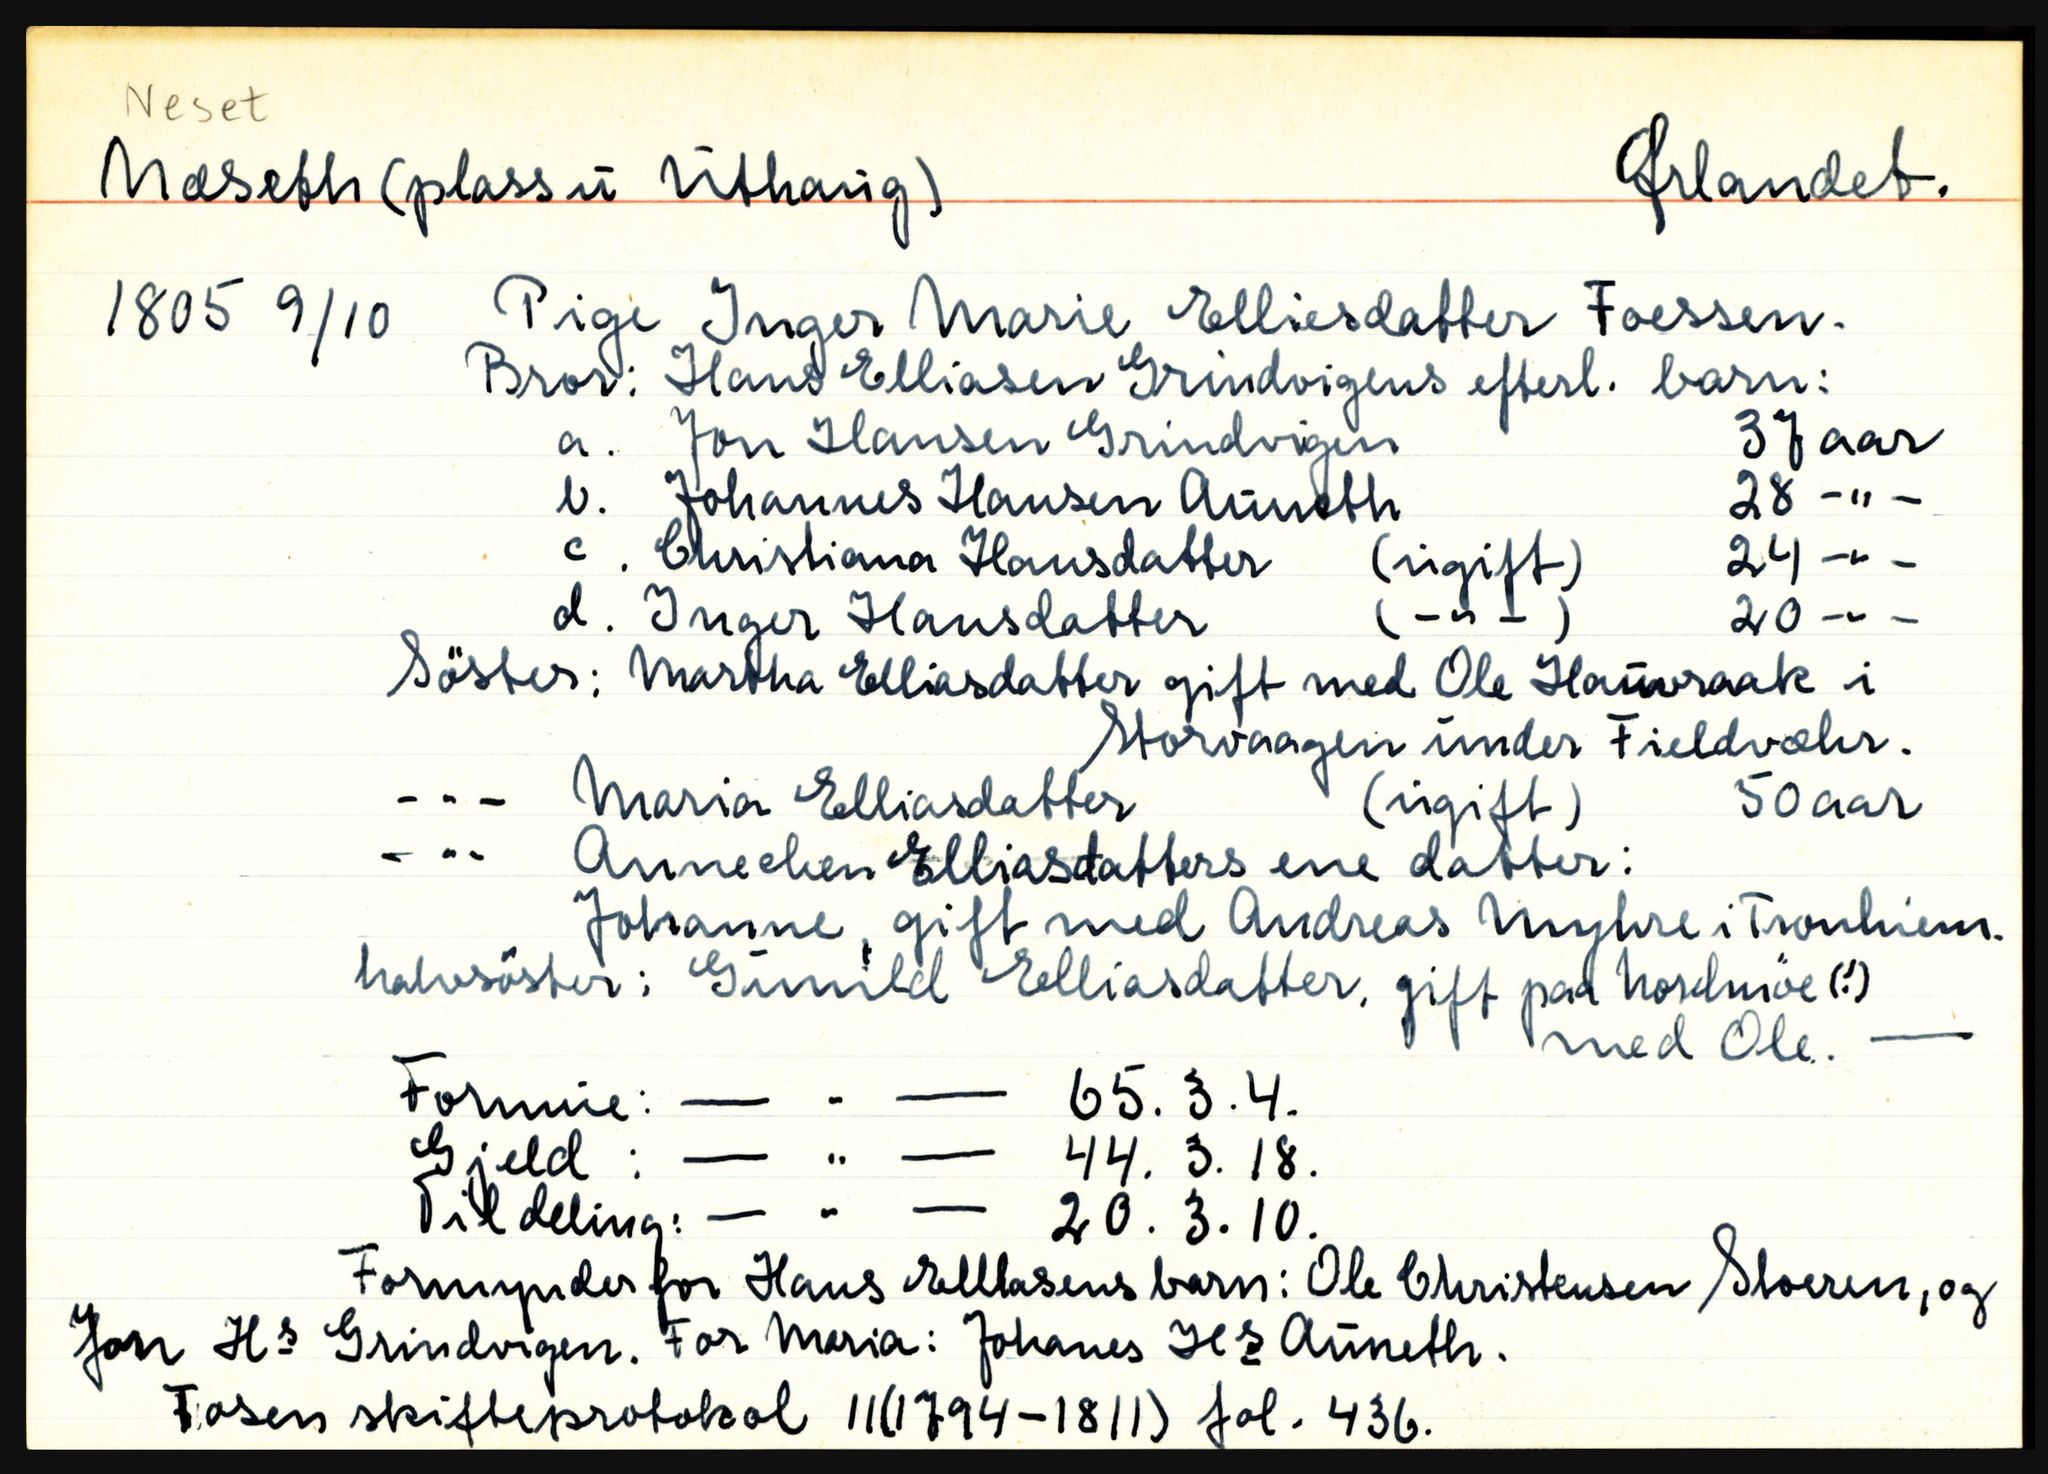 Neset
Næseth (plass u Uthaug) Ørlandet.
1805 9/10 Pige Inger Marie Elliesdatter Foessen.
Bror: Hans Elliasen Grindvigens efterl. barn:
a. Jon Hansen Grindvigen 37 aar
b. Johannes Hansen Auneth 28 -"-
c. Christiana Hansdatter (ugift) 24 -"-
d. Inger Hansdatter (-"-) 20 -"-
Söster: Martha Elliasdatter gift med Ole Hauvraak i
Storvaagen under Fieldvæhr.
-"- Maria Elliasdatter (ugift) 50 aar
-"- Annechen Elliasdatters ene datter:
Johanne, gift med Andreas Myhre i Tronhiem.
halvsöster: Gunild Elliasdatter, gift paa Nordmöe (!)
med Ole. —
Formue: — " — 65. 3. 4.
Gjeld: — " — 44. 3. 18.
Til deling: — " — 20. 3. 10.
Formynder for Hans Elliasens barn: Ole Christensen Stoeren, og
Jon Hs Grindvigen. For Maria: Johanes Hs Auneth.
Fosen skifteprotokol 11 (1794-1811) fol. 436.